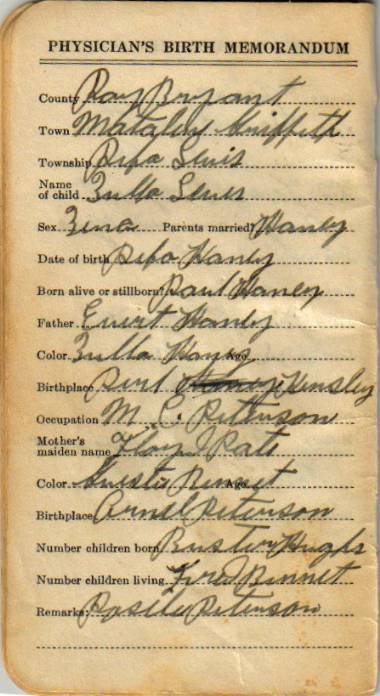 PHYSICIAN'S BIRTH MEMORANDUM
County Ray Bryant
Town Griffeth
Township Repa Lewis
Name of child Zulla Lewis
Sex Zena Parents married? Haney
Date of birth Repa Haney
Born alive or stillborn? Paul Haney
Father Evert Haney
Color Zulla Haney Age
Birthplace Perl Hensley
Occupation M. C. Peterson
Mother's maiden name Floyd Pate
Color Rennet Age
Birthplace Arnel Peterson
Number children born Buster Hughs
Number children living Fred Rennet
Remarks: Peterson